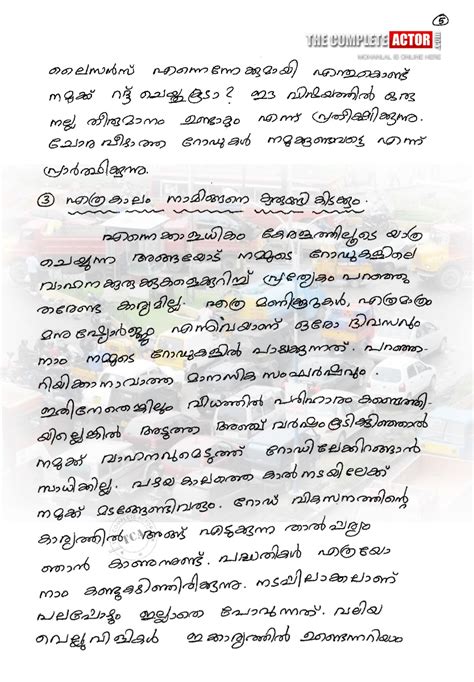 5
THE COMPLETE ACTOR .COM
MOHANLAL IS ONLINE HERE
ലൈസൻസ് എന്നെന്നേക്കുമായി എന്തുകൊണ്ട്
നമുക്ക് റദ്ദ് ചെയ്തുകൂടാ? ഈ വിഷയത്തിൽ ഒരു
നല്ല തീരുമാനം ഉണ്ടാകും എന്ന് പ്രതീക്ഷിക്കുന്നു.
ചോര വീഴാത്ത റോഡുകൾ നമുക്കുണ്ടാവട്ടെ എന്ന്
പ്രാർത്ഥിക്കുന്നു.
③ എത്രകാലം നാമിങ്ങനെ കുരുങ്ങി കിടക്കും.
എന്നെക്കാളധികം കേരളത്തിലൂടെ യാത്ര
ചെയ്യുന്ന അങ്ങയോട് നമ്മുടെ റോഡുകളിലെ
വാഹനക്കുരുക്കുകളെക്കുറിച്ച് പ്രത്യേകം പറഞ്ഞു
തരേണ്ട കാര്യമില്ല. എത്ര മണിക്കൂറുകൾ, എത്രമാത്രം
മനുഷ്യോർജ്ജം എന്നിവയാണ് ഓരോ ദിവസവും
നാം നമ്മുടെ റോഡുകളിൽ പാഴാക്കുന്നത്. പറഞ്ഞ-
റിയിക്കാനാവാത്ത മാനസിക സംഘർഷവും.
ഇതിനേതെങ്കിലും വിധത്തിൽ പരിഹാരം കണ്ടെത്തി-
യില്ലെങ്കിൽ അടുത്ത അഞ്ച് വർഷം കൂടികഴിഞ്ഞാൽ
നമുക്ക് വാഹനവുമെടുത്ത് റോഡിലേക്കിറങ്ങാൻ
സാധിക്കില്ല. പഴയ കാലത്തെ കാൽനടയിലേക്ക്
നമുക്ക് മടങ്ങേണ്ടിവരും. റോഡ് വികസനത്തിന്റെ
കാര്യത്തിൽ അങ്ങ് എടുക്കുന്ന താൽപര്യം
ഞാൻ കാണുന്നുണ്ട്. പദ്ധതികൾ എത്രയോ
നാം കണ്ടുകഴിഞ്ഞിരിക്കുന്നു. നടപ്പിലാക്കലാണ്
പലപ്പോഴും ഇല്ലാതെ പോവുന്നത്. വലിയ
വെല്ലുവിളികൾ ഇക്കാര്യത്തിൽ ഉണ്ടെന്നറിയാം